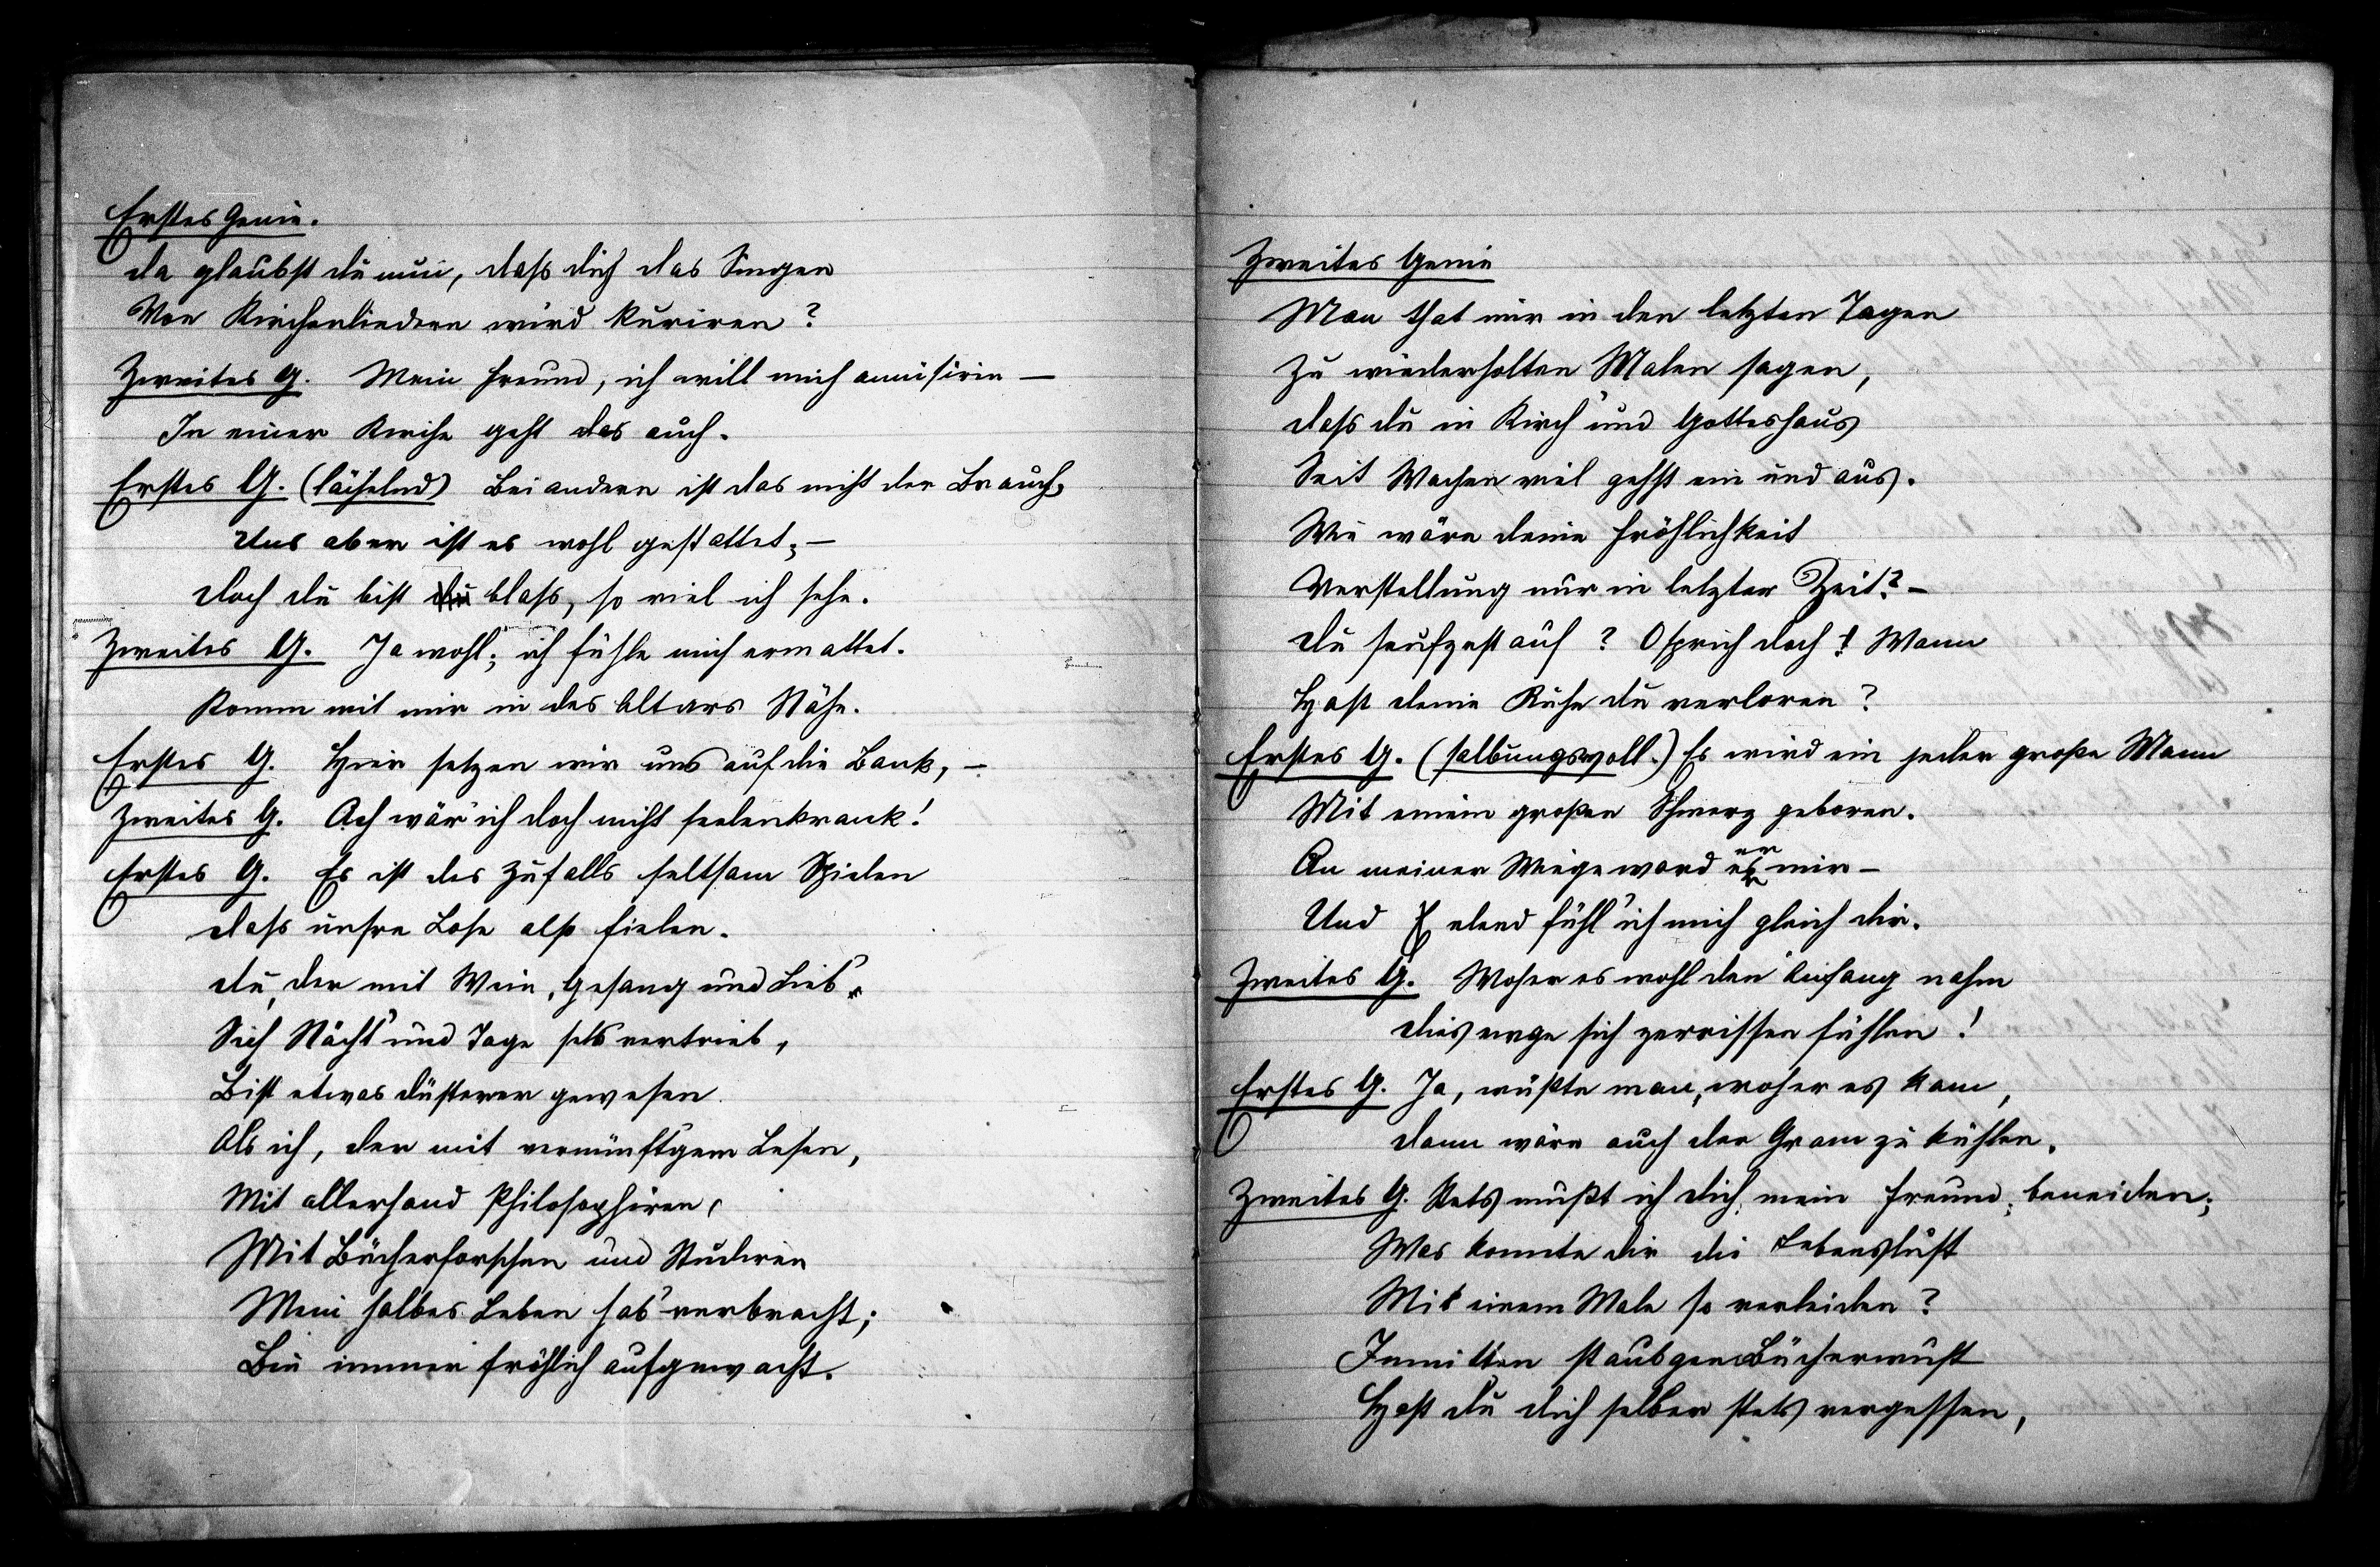 Erstes Genie.
da glaubst du nun, dass dich das Singen
Von Kirchenliedern wird kuriren?
Zweites G. Mein Freund, ich will mich amüsiren —
In einer Kirche geht das auch.
Erstes G. (lächelnd) Bei andern ist das nicht der Brauch,
Uns aber ist es wohl gestattet; —
doch du bist du blass, so viel ich sehe.
Zweites G. Ja wohl; ich fühle mich ermattet.
Komm mit mir in des Altars Nähe.
Erstes G. Hier setzen wir uns auf die Bank, —
Zweites G. Ach wär' ich doch nicht seelenkrank!
Erstes G. Es ist des Zufalls seltsam Spielen
dass unsre Lose also fielen.
du, der mit Wein, Gesang und Lieb'
Sich Nächt' und Tage stets vertrieb,
Bist etwas düsterer gewesen
Als ich, der mit vernünft'gem Lesen,
Mit allerhand Philosophiren,
Mit Bücherforschen und Studiren
Mein halbes Leben hab' verbracht;
Bin immer fröhlich aufgewacht.
Zweites Genie
Man that mir in den letzten Tagen
zu wiederholten Malen sagen,
dass du in Kirch' und Gotteshaus
Seit Wochen viel gehst ein und aus.
Wie wäre deine Fröhlichkeit
Verstellung nur in letzter Zeit? —
du seufzest auf? O sprich doch! Wann
Hast deine Ruhe du verloren?
Erstes G. (salbungsvoll.) Es wird ein jeder große Mann
Mit einem großen Schmerz geboren.
An meiner Wiege ward er mir —
Und elend fühl' ich mich gleich dir.
Zweites G. Woher es wohl den Anfang nahm
dies ewge sich zerrissen fühlen!
Erstes G. Ja, wüßte man, woher es kam,
dann wäre auch der Gram zu kühlen.
Zweites G. Stets mußt ich dich, mein Freund, beneiden;
Was konnte dir die Lebenslust
Mit einem Male so verleiden?
Inmitten staubgen Bücherwust
Hast du dich selber stets vergessen,